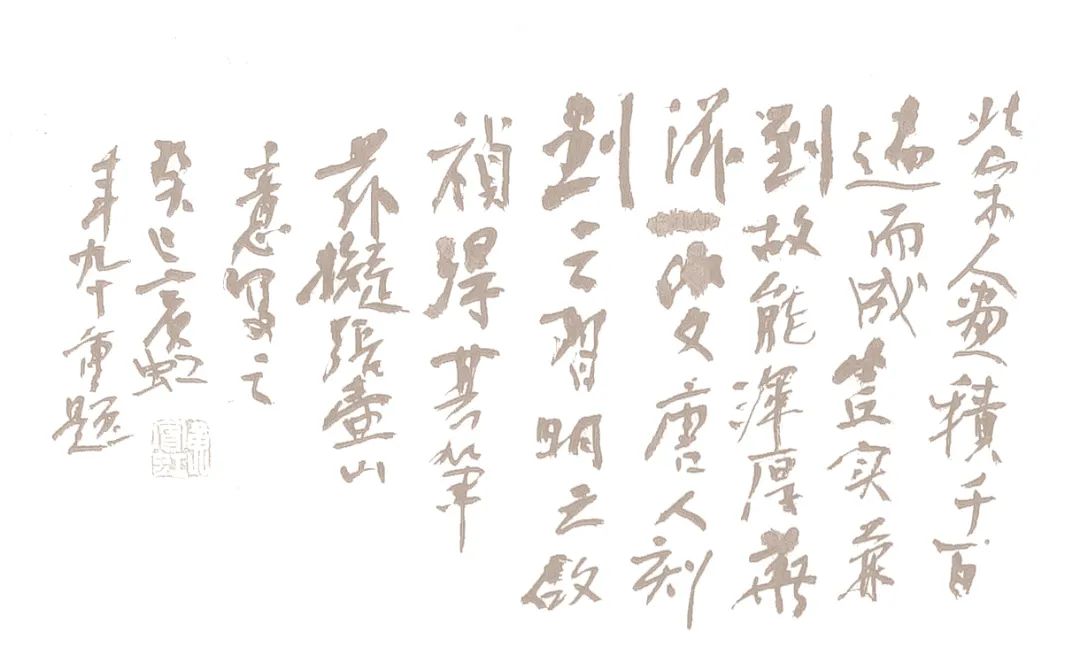 北宋人畫積千百
遍而成畫實兼
到故能渾厚華
滋一變唐人刻
劃之習明之啟
禎得其筆
茲擬張壺山
意寫之
癸巳賓虹
年九十重題